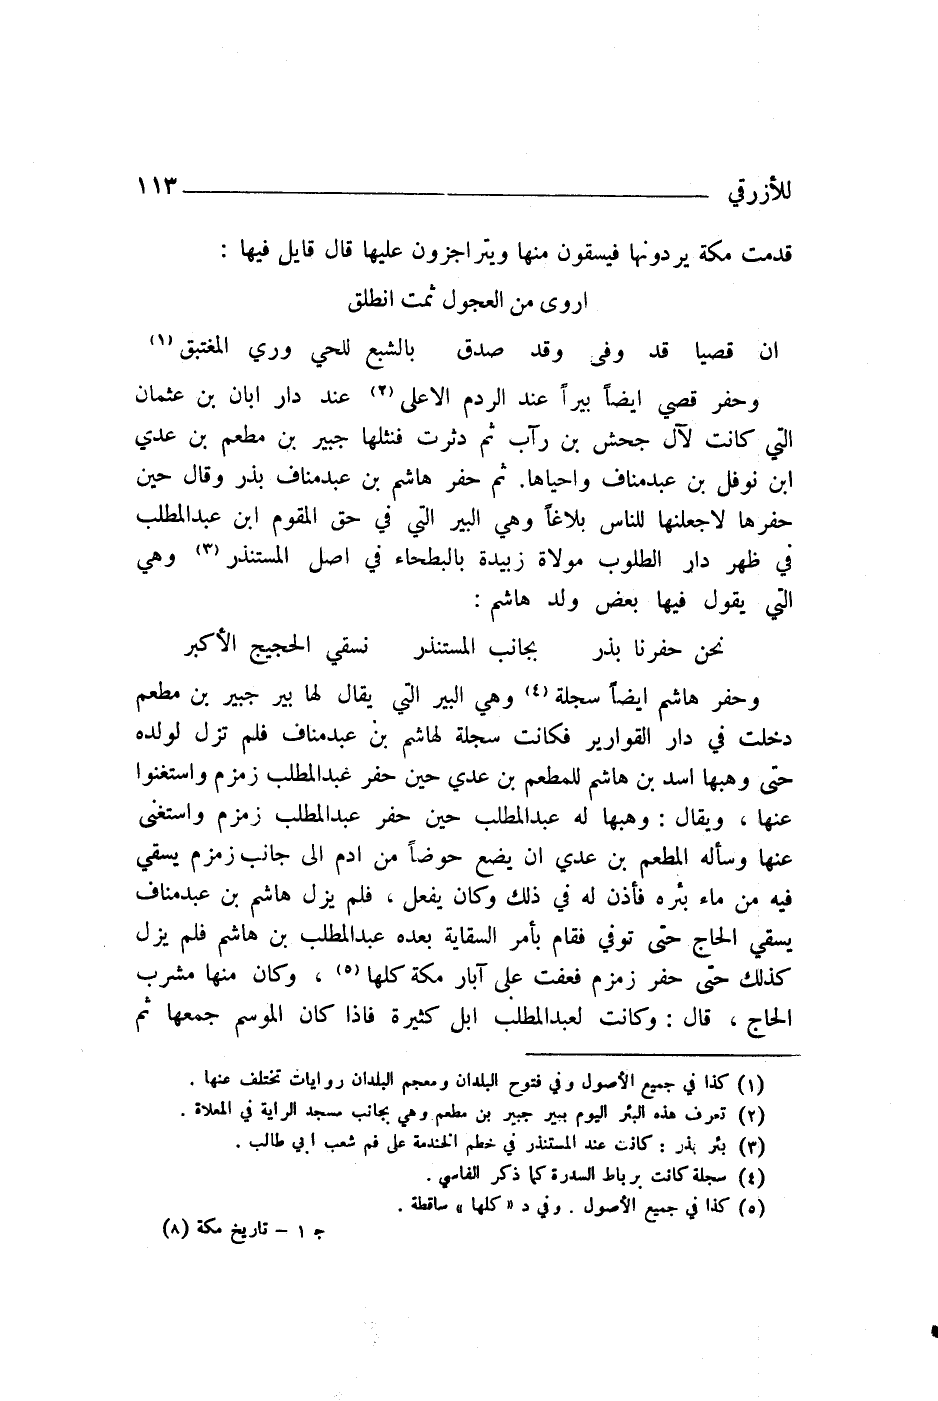 للأزرقي ١١٣
قدمت مكة يردونها فيسقون منها ويتراجزون عليها قال قايل فيها :
اروى من العجول ثمت انطلق
ان قصيا قد وفى وقد صدق بالشبع للحي وري المغتبق (١)
وحفر قصي ايضاً بيراً عند الردم الاعلى (٢) عند دار ابان بن عثمان
التي كانت لآل جحش بن رآب ثم دثرت فنثلها جبير بن مطعم بن عدي
ابن نوفل بن عبدمناف واحياها. ثم حفر هاشم بن عبدمناف بذر وقال حين
حفرها لاجعلنها للناس بلاغاً وهي البير التي في حق المقوم ابن عبدالمطلب
في ظهر دار الطلوب مولاة زبيدة بالبطحاء في اصل المستنذر (٣) وهي
التي يقول فيها بعض ولد هاشم :
نحن حفرنا بذر بجانب المستنذر نسقي الحجيج الأكبر
وحفر هاشم ايضاً سجلة (٤) وهي البير التي يقال لها بير جبير بن مطعم
دخلت في دار القوارير فكانت سجلة لهاشم بن عبدمناف فلم تزل لولده
حتى وهبها اسد بن هاشم للمطعم بن عدي حين حفر عبدالمطلب زمزم واستغنوا
عنها ، ويقال : وهبها له عبدالمطلب حين حفر عبدالمطلب زمزم واستغنى
عنها وسأله المطعم بن عدي ان يضع حوضاً من ادم الى جانب زمزم يسقي
فيه من ماء بئره فأذن له في ذلك وكان يفعل ، فلم يزل هاشم بن عبدمناف
يسقي الحاج حتى توفي فقام بأمر السقاية بعده عبدالمطلب بن هاشم فلم يزل
كذلك حتى حفر زمزم فعفت على آبار مكة كلها (٥) ، وكان منها مشرب
الحاج ، قال : وكانت لعبدالمطلب ابل كثيرة فاذا كان الموسم جمعها ثم
(١) كذا في جميع الأصول وفي فتوح البلدان ومعجم البلدان روايات تختلف عنها .
(٢) تعرف هذه البئر اليوم ببير جبير بن مطعم وهي بجانب مسجد الراية في المعلاة .
(٣) بئر بذر : كانت عند المستنذر في خطم الخندمة على فم شعب ابي طالب .
(٤) سجلة كانت برباط السدرة كما ذكر الفاسي .
(٥) كذا في جميع الأصول . وفي د « كلها » ساقطة .
ج ١ – تاريخ مكة (٨)